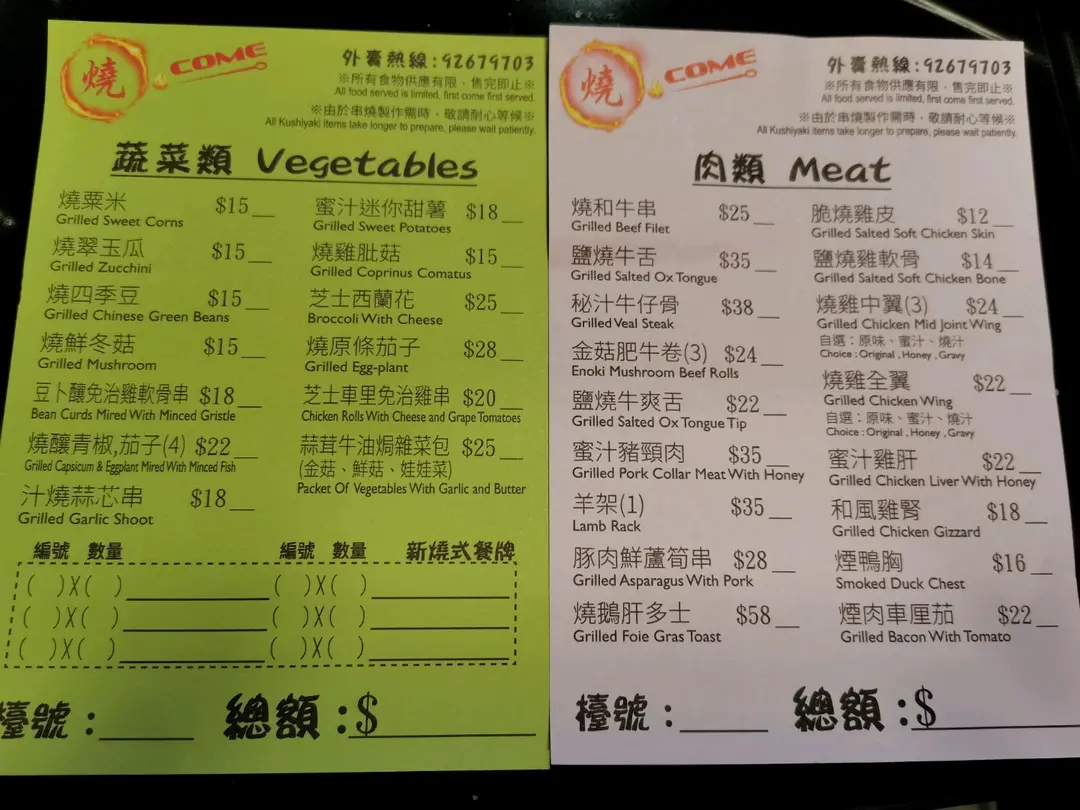 燒 COME
外賣熱線:92679703
※所有食物供應有限，售完即止※
All food served is limited, first come first served.
※由於串燒製作需時，敬請耐心等候※
All Kushiyaki items take longer to prepare, please wait patiently.
蔬菜類 Vegetables
燒粟米 $15__
Grilled Sweet Corns
燒翠玉瓜 $15__
Grilled Zucchini
燒四季豆 $15__
Grilled Chinese Green Beans
燒鮮冬菇 $15__
Grilled Mushroom
豆卜釀免治雞軟骨串 $18__
Bean Curds Mired With Minced Gristle
燒釀青椒,茄子(4) $22__
Grilled Capsicum & Eggplant Mired With Minced Fish
汁燒蒜芯串 $18__
Grilled Garlic Shoot
蜜汁迷你甜薯 $18__
Grilled Sweet Potatoes
燒雞肶菇 $15__
Grilled Coprinus Comatus
芝士西蘭花 $25__
Broccoli With Cheese
燒原條茄子 $28__
Grilled Egg-plant
芝士車里免治雞串 $20__
Chicken Rolls With Cheese and Grape Tomatoes
蒜茸牛油焗雜菜包 $25__
(金菇、鮮菇、娃娃菜)
Packet Of Vegetables With Garlic and Butter
編號 數量 編號 數量 新燒式餐牌
( )X( )__________ ( )X( )__________
( )X( )__________ ( )X( )__________
( )X( )__________ ( )X( )__________
檯號：______ 總額：$__________
燒 COME
外賣熱線:92679703
※所有食物供應有限，售完即止※
All food served is limited, first come first served.
※由於串燒製作需時，敬請耐心等候※
All Kushiyaki items take longer to prepare, please wait patiently.
肉類 Meat
燒和牛串 $25__
Grilled Beef Filet
鹽燒牛舌 $35__
Grilled Salted Ox Tongue
秘汁牛仔骨 $38__
Grilled Veal Steak
金菇肥牛卷(3) $24__
Enoki Mushroom Beef Rolls
鹽燒牛爽舌 $22__
Grilled Salted Ox Tongue Tip
蜜汁豬頸肉 $35__
Grilled Pork Collar Meat With Honey
羊架(1) $35__
Lamb Rack
豚肉鮮蘆筍串 $28__
Grilled Asparagus With Pork
燒鵝肝多士 $58__
Grilled Foie Gras Toast
脆燒雞皮 $12__
Grilled Salted Soft Chicken Skin
鹽燒雞軟骨 $14__
Grilled Salted Soft Chicken Bone
燒雞中翼(3) $24__
Grilled Chicken Mid Joint Wing
自選：原味、蜜汁、燒汁
Choice : Original , Honey , Gravy
燒雞全翼 $22__
Grilled Chicken Wing
自選：原味、蜜汁、燒汁
Choice : Original , Honey , Gravy
蜜汁雞肝 $22__
Grilled Chicken Liver With Honey
和風雞腎 $18__
Grilled Chicken Gizzard
煙鴨胸 $16__
Smoked Duck Chest
煙肉車厘茄 $22__
Grilled Bacon With Tomato
檯號：______ 總額：$__________